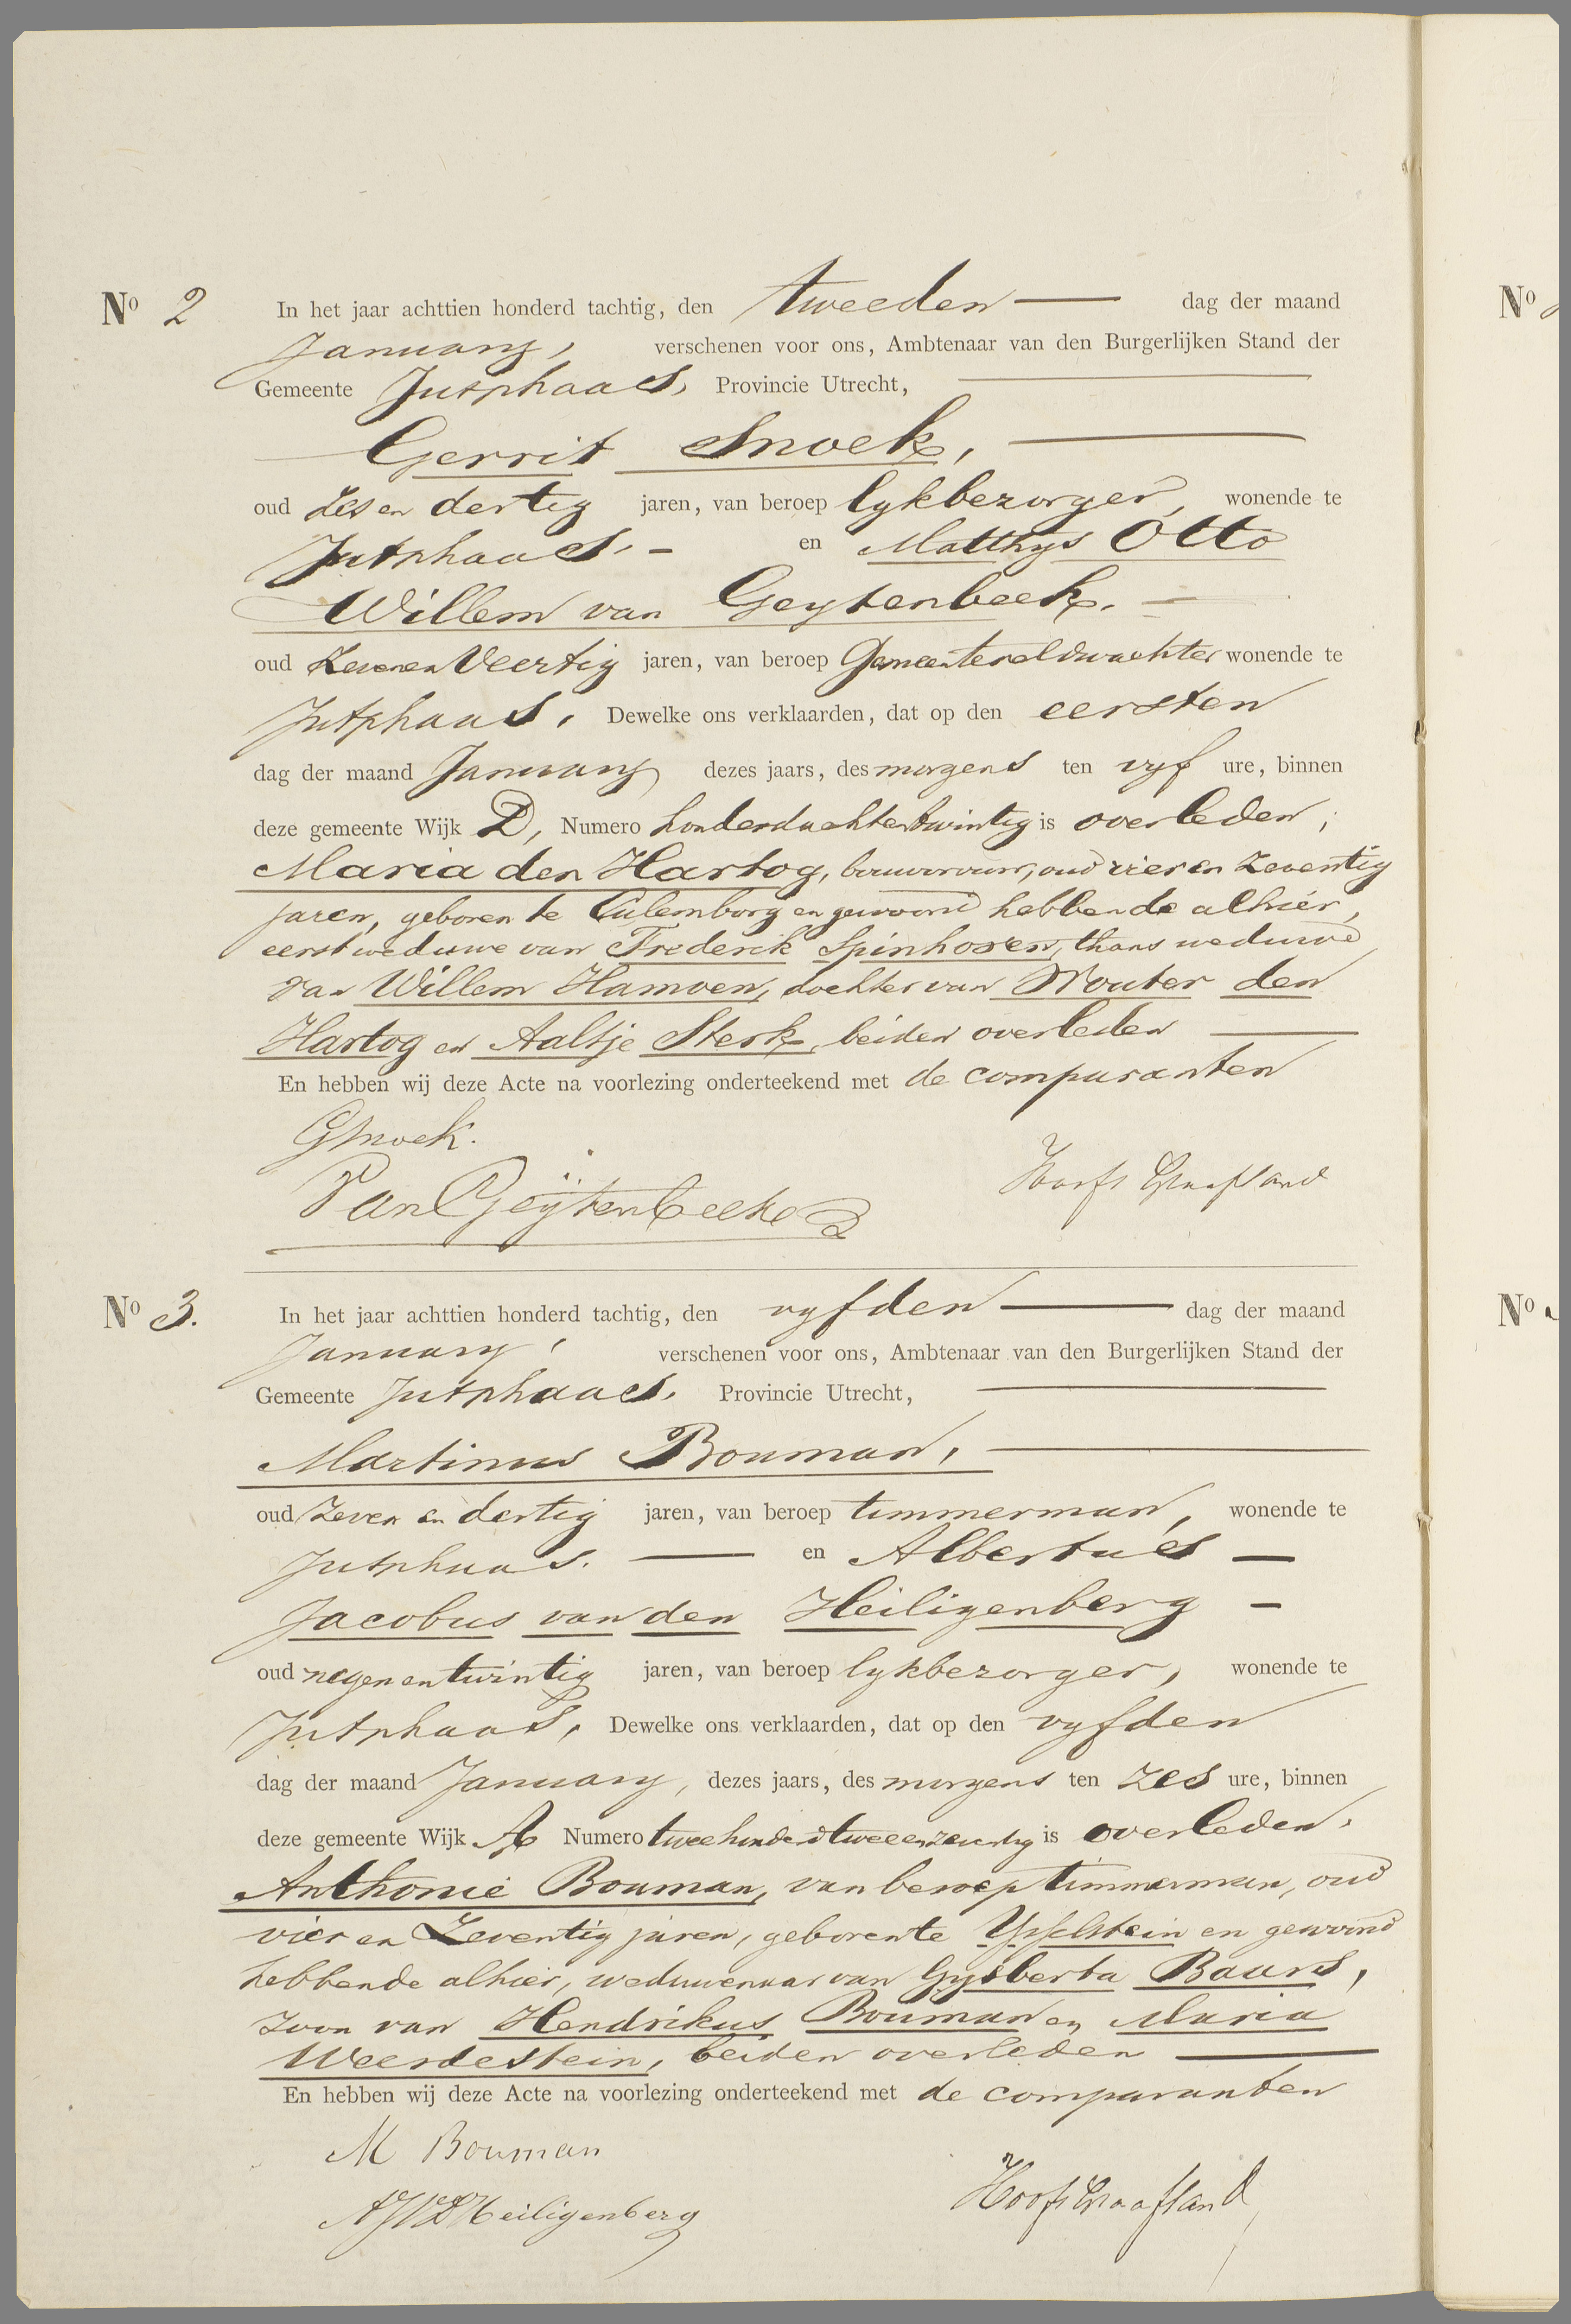 No 2 In het jaar achttien honderd tachtig, den tweeden dag der maand
January, verschenen voor ons, Ambtenaar van den Burgerlijken Stand der
Gemeente Jutphaas, Provincie Utrecht,
Gerrit Snoek,
oud zes en dertig jaren, van beroep lykbezorger, wonende te
Jutphaas. en Matthys Otto
Willem van Geytenbeek.
oud zevenen veertig jaren, van beroep Gemeenteveldwachter wonende te
Jutphaas, Dewelke ons verklaarden, dat op den eersten
dag der maand January dezes jaars, des morgens ten vyf ure, binnen
deze gemeente Wijk D, Numero honderdachtentwintig is overleden;
Maria den Hartog, bouwvrouw, oud vier en zeventig
jaren, geboren te Culemborg en gewoond hebbende alhier,
eerst weduwe van Frederik Spinhoven, thans weduwe
van Willem Hamoen, dochter van Wouter den
Hartog en Aaltje Sterk, beiden overleden
En hebben wij deze Acte na voorlezing onderteekend met de comparanten
GSnoek.
Van Geÿtenbeek
Hooft Graafland
No 3. In het jaar achttien honderd tachtig, den vyfden dag der maand
January, verschenen voor ons, Ambtenaar van den Burgerlijken Stand der
Gemeente Jutphaas. Provincie Utrecht,
Martinus Bouman,
oud zeven en dertig jaren, van beroep timmerman, wonende te
Jutphaas. en Albertus
Jacobus van den Heiligenberg
oud negenentwintig jaren, van beroep lykbezorger, wonende te
Jutphaas, Dewelke ons verklaarden, dat op den vyfden
dag der maand January, dezes jaars, des morgens ten zes ure, binnen
deze gemeente Wijk A Numero tweehonderdtweeenzeventig is overleden.
Anthonie Bouman, van beroep timmerman, oud
vier en zeventig jaren, geboren te Ysselstein en gewoond
hebbende alhier, weduwenaar van Gysberta Baars,
zoon van Hendrikus Bouman en Maria
Weerdestein, beiden overleden
En hebben wij deze Acte na voorlezing onderteekend met de comparanten
M Bouman
AJVDHeiligenberg
Hooft Graafland
No
No